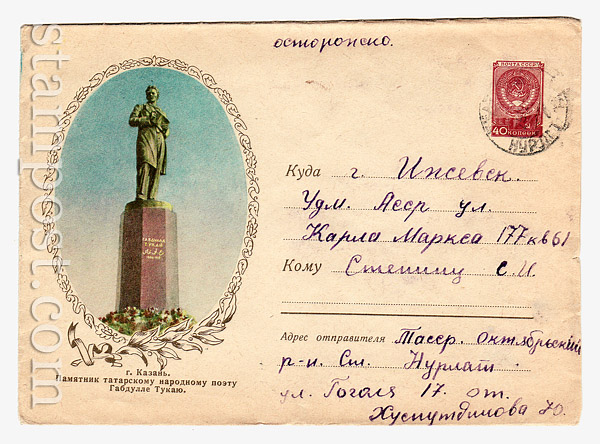 осторожно.
ПОЧТА СССР
40 КОПЕЕК
НУРЛАТ
Куда г. Ижевск.
Удм. Асср ул.
Карла Маркса 177 кв 61
Кому Степину С. И.
ГАБДУЛЛА
ТУКАЙ
Адрес отправителя Тасср. октябрьский
р-н Ст. Нурлат
ул. Гоголя 17. от.
Хуснутдинова Ю.
г. Казань.
Памятник татарскому народному поэту
Габдулле Тукаю.
stamppost.com